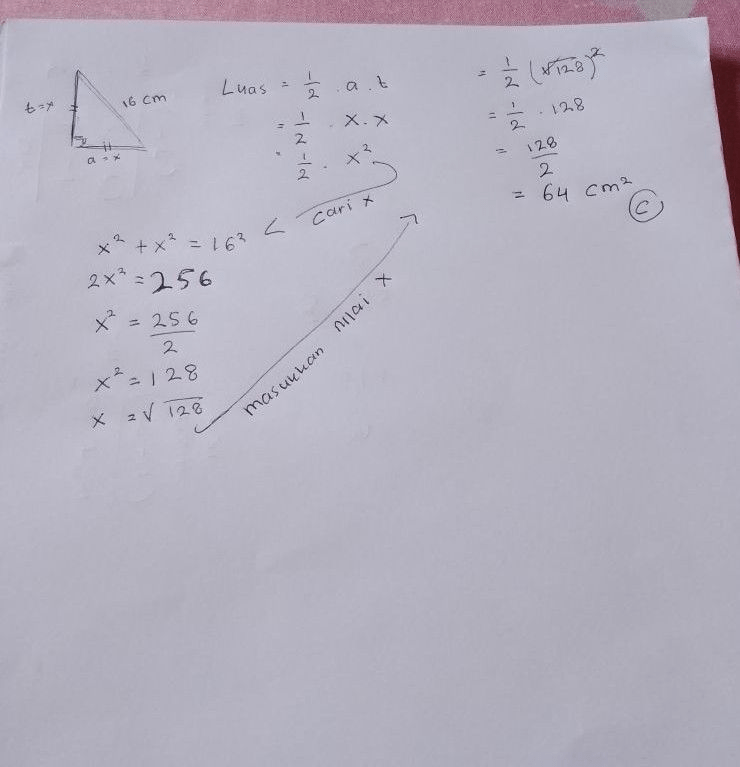 t = x
16 cm
a = x
Luas = 1/2 . a . t
= 1/2 . x . x
= 1/2 . x²
cari x
x² + x² = 16²
2x² = 256
x² = 256/2
x² = 128
x = √128
masukkan nilai x
= 1/2 (√128)²
= 1/2 . 128
= 128/2
= 64 cm²
C